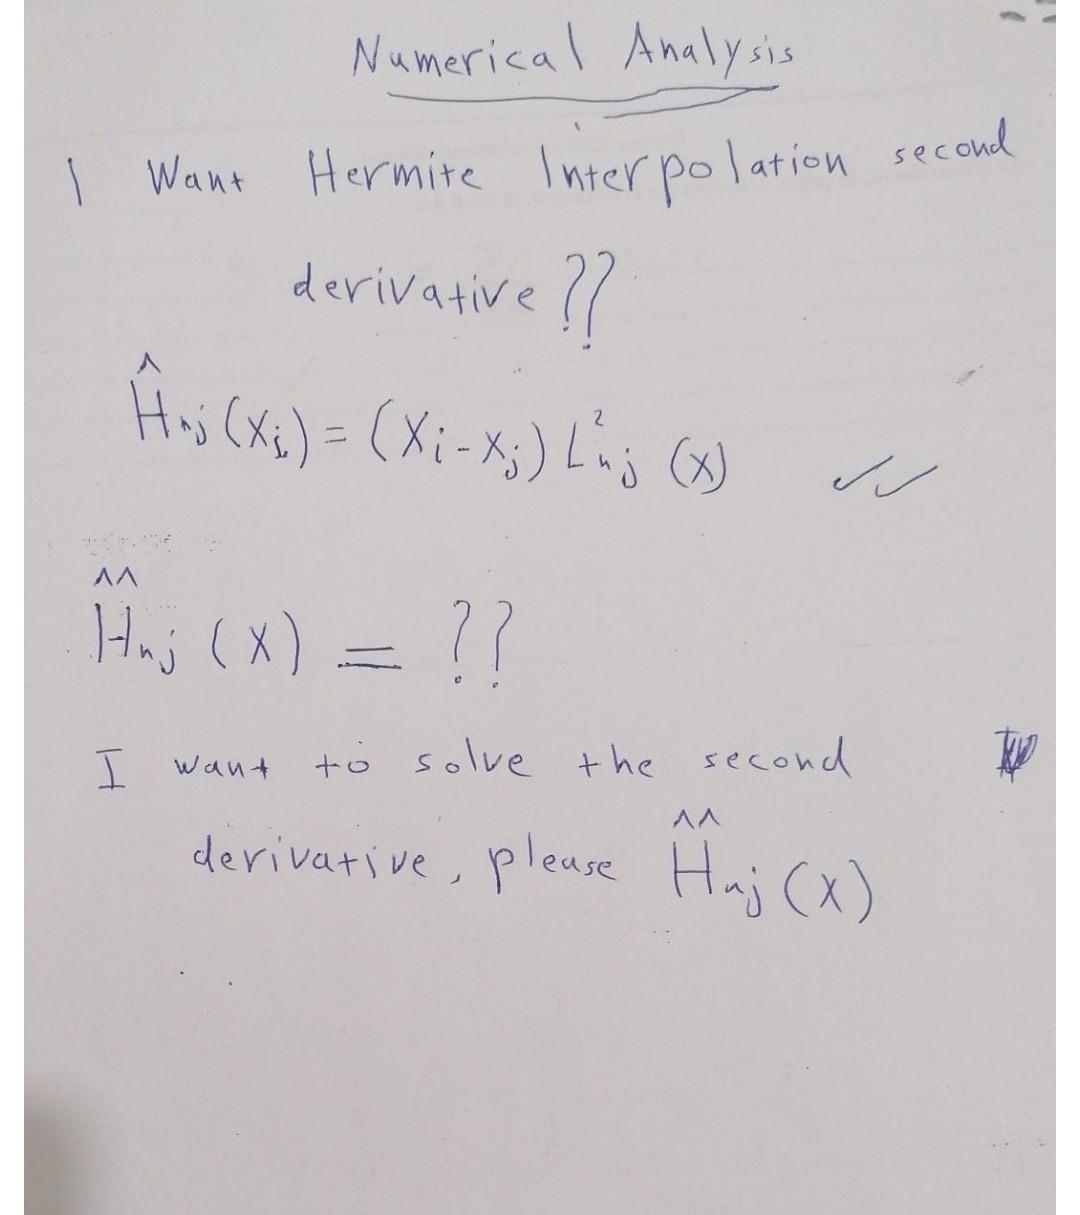 Numerical Analysis
I Want Hermite Interpolation second
derivative ??
Ĥnj (xi) = (xi - xj) L²nj (x) ✓✓
^^
Hnj (x) = ??
I want to solve the second
derivative, please ^^Hnj (x)